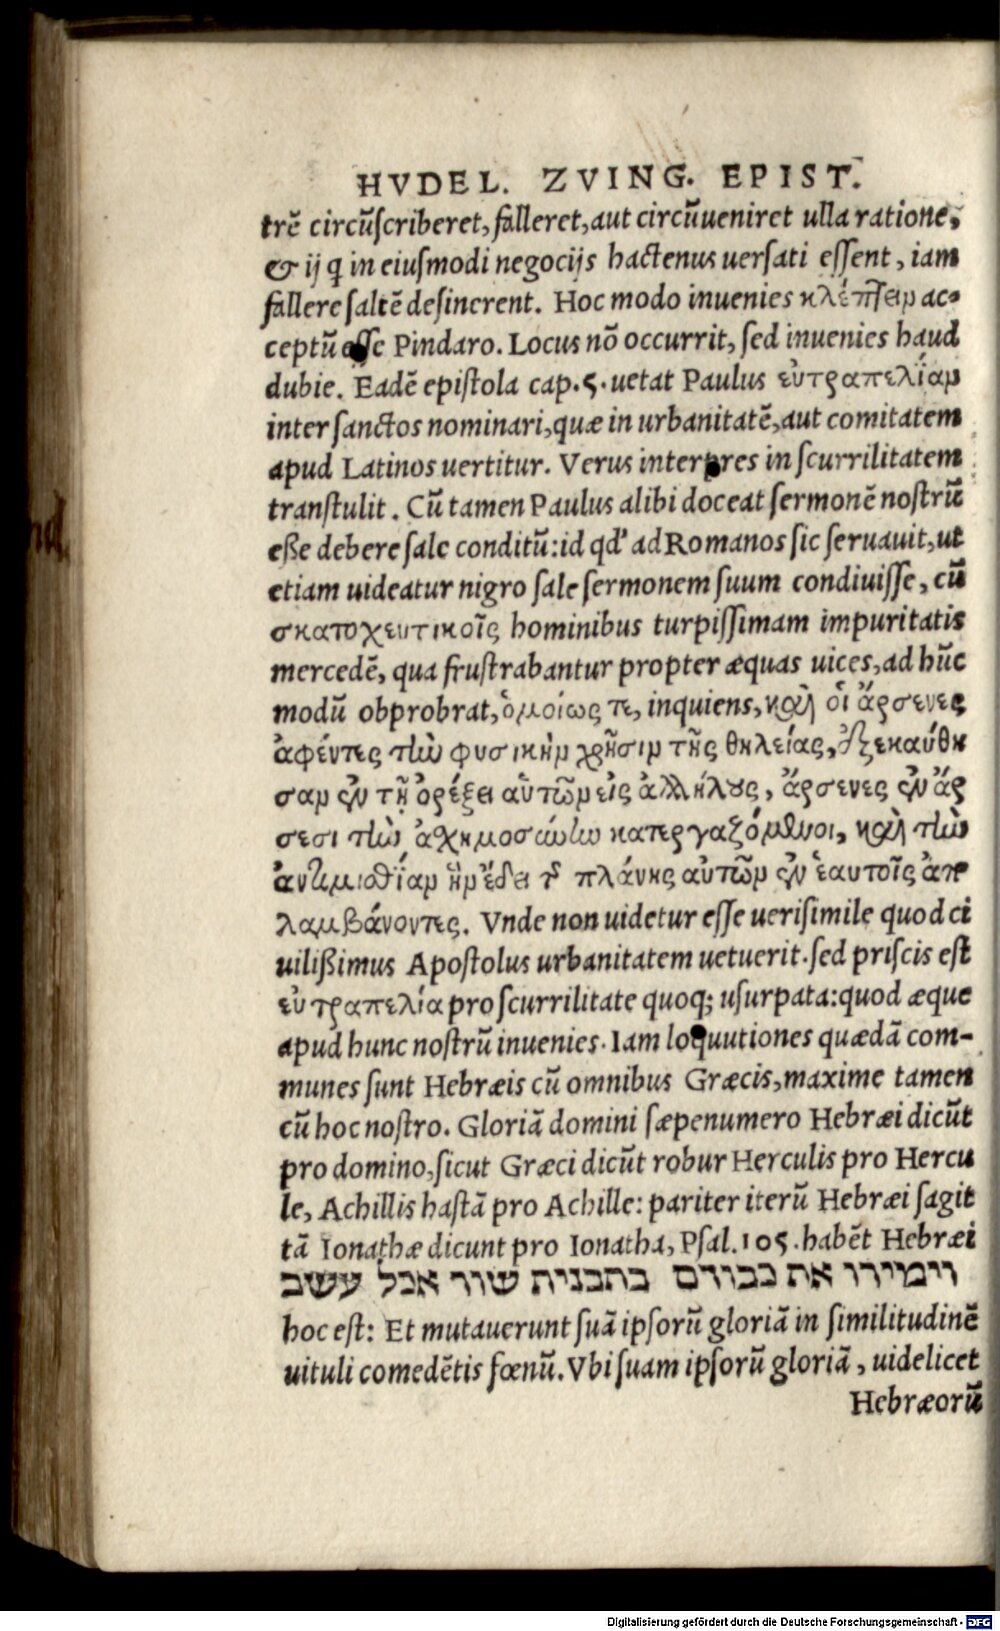 HVDEL. ZVING. EPIST.
trē circūſcriberet, falleret, aut circūueniret ulla ratione,
& ij q̄ in eiuſmodi negocijs hactenus uerſati eſſent, iam
fallere ſaltē deſinerent. Hoc modo inuenies κλέπτειν ac-
ceptū eſſe Pindaro. Locus nō occurrit, ſed inuenies haud
dubie. Eadē epiſtola cap. 5. uetat Paulus εὐτραπελίαν
inter ſanctos nominari, quæ in urbanitatē, aut comitatem
apud Latinos uertitur. Verus interpres in ſcurrilitatem
tranſtulit. Cū tamen Paulus alibi doceat ſermonē noſtrū
eſſe debere ſale conditū: id qd' ad Romanos ſic ſeruauit, ut
etiam uideatur nigro ſale ſermonem ſuum condiuiſſe, cū
σκατοχευτικοῖς hominibus turpiſſimam impuritatis
mercedē, qua fruſtrabantur propter æquas uices, ad hūc
modū obprobrat, ὁμοίως τε, inquiens, καὶ οἱ ἄρσενες
ἀφέντες τὴν φυσικὴν χρῆσιν τῆς θηλείας, ἐξεκαύθη
σαν ἐν τῇ ὀρέξει αὑτῶν εἰς ἀλλήλους, ἄρσενες ἐν ἄρ
σεσι τὴν ἀχημοσύνην κατεργαζόμενοι, καὶ τὴν
ἀντιμισθίαν ἣν ἔδει τῆς πλάνης αὐτῶν ἐν ἑαυτοῖς ἀπο
λαμβάνοντες. Vnde non uidetur eſſe ueriſimile quod ci
uiliſſimus Apoſtolus urbanitatem uetuerit. ſed priſcis eſt
εὐτραπελία pro ſcurrilitate quoq; uſurpata: quod æque
apud hunc noſtrū inuenies. Iam loquutiones quædā com-
munes ſunt Hebræis cū omnibus Græcis, maxime tamen
cū hoc noſtro. Gloriā domini ſæpenumero Hebræi dicūt
pro domino, ſicut Græci dicūt robur Herculis pro Hercu
le, Achillis haſtā pro Achille: pariter iterū Hebræi ſagit
tā Ionathæ dicunt pro Ionatha, Pſal. 105. habēt Hebræi
וימירו את כבודם בתבנית שור אכל עשב
hoc eſt: Et mutauerunt ſuā ipſorū gloriā in ſimilitudinē
uituli comedētis fœnū. Vbi ſuam ipſorū gloriā, uidelicet
Hebræorū
Digitalisierung gefördert durch die Deutsche Forschungsgemeinschaft - DFG